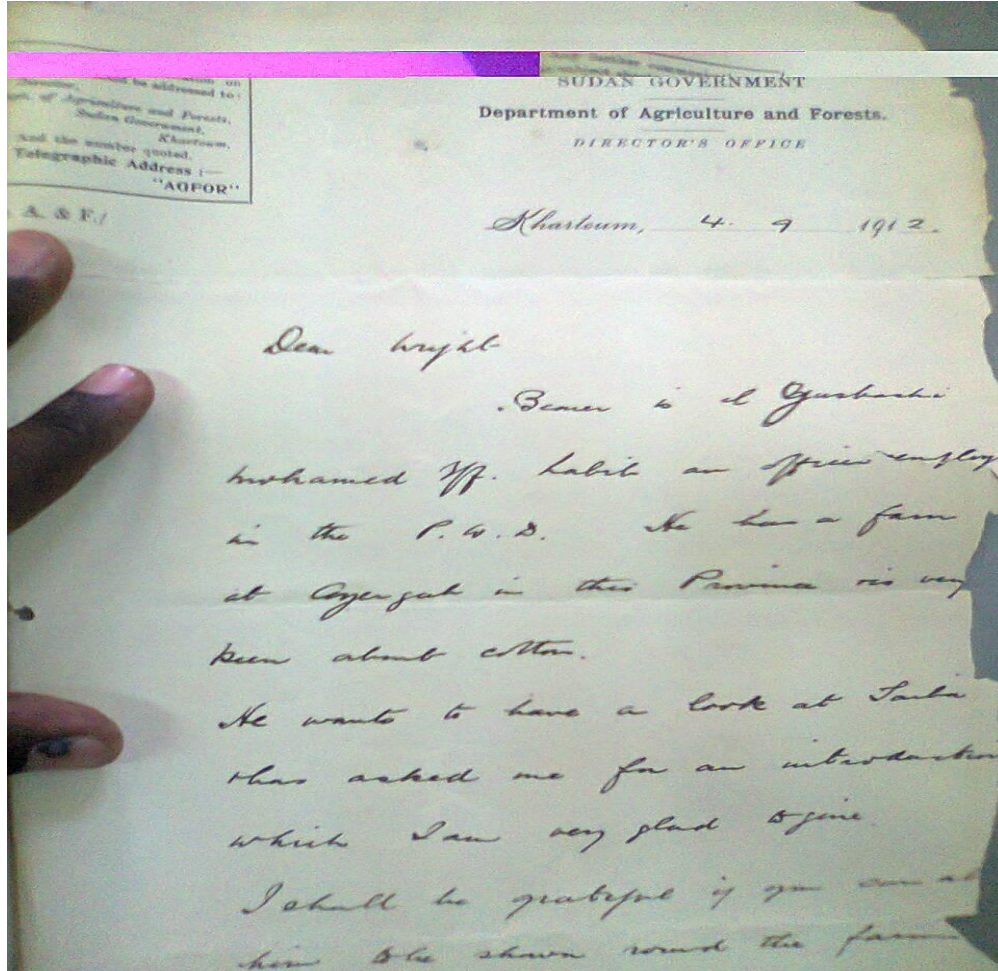 on
be addressed to:
of Agriculture and Forests,
Sudan Government,
Khartoum,
and the number quoted.
Telegraphic Address :—
"AGFOR"
A. & F./
SUDAN GOVERNMENT
Department of Agriculture and Forests.
DIRECTOR'S OFFICE
Khartoum, 4. 9 1912.
Dear Wright
Bearer is El Yusbashi
Mohamed Eff. Habib an officer employ
in the P.W.D. He has a farm
at in this Province & is very
keen about cotton.
He wants to have a look at
& has asked me for an introduction
which I am very glad to give.
I shall be grateful if you can
him to be shown round the farm